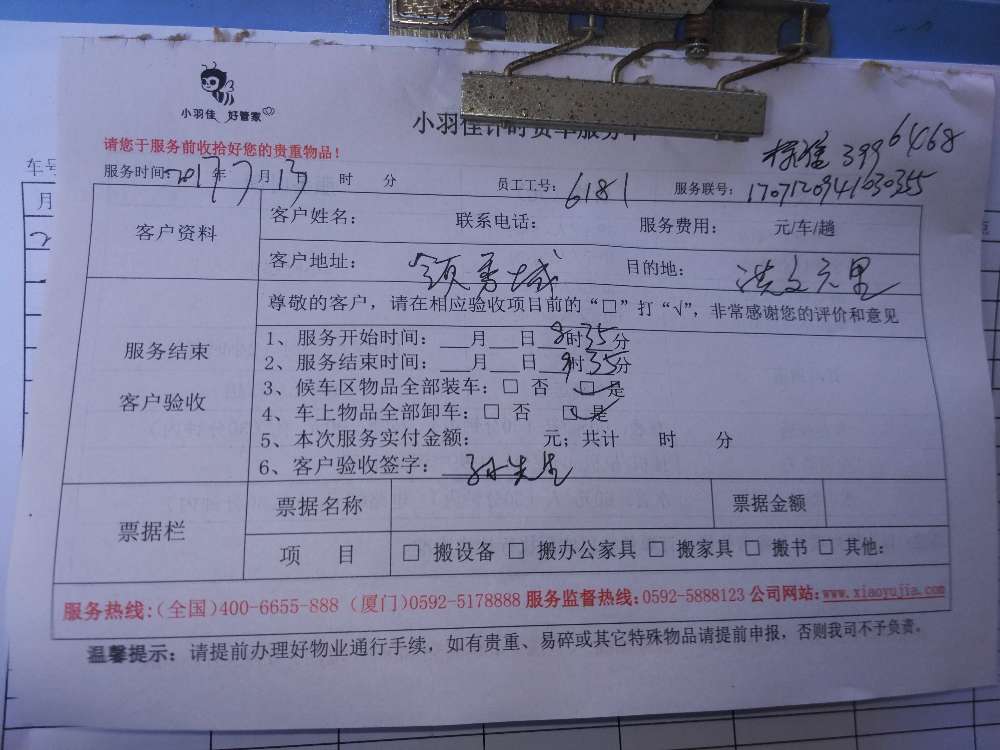 小羽佳 好管家
小羽佳计时货车服务单
请您于服务前收拾好您的贵重物品！
标准 399 6468
服务时间：2017年7月13 时 分 员工工号：6181 服务联号：1707120941030355
车号
月
客户资料
客户姓名： 联系电话： 服务费用： 元/车/趟
客户地址：领秀城 目的地：洪文元里
服务结束
客户验收
尊敬的客户，请在相应验收项目前的“□”打“√”，非常感谢您的评价和意见
1、服务开始时间：___月___日8时35分
2、服务结束时间：___月___日9时35分
3、候车区物品全部装车：□ 否 ☑ 是
4、车上物品全部卸车：□ 否 ☑ 是
5、本次服务实付金额： 元；共计 时 分
6、客户验收签字：孙先生
票据栏
票据名称 票据金额
项 目 □ 搬设备 □ 搬办公家具 □ 搬家具 □ 搬书 □ 其他：
服务热线：（全国）400-6655-888（厦门）0592-5178888 服务监督热线：0592-5888123 公司网站：www.xiaoyujia.com
温馨提示：请提前办理好物业通行手续，如有贵重、易碎或其它特殊物品请提前申报，否则我司不予负责。